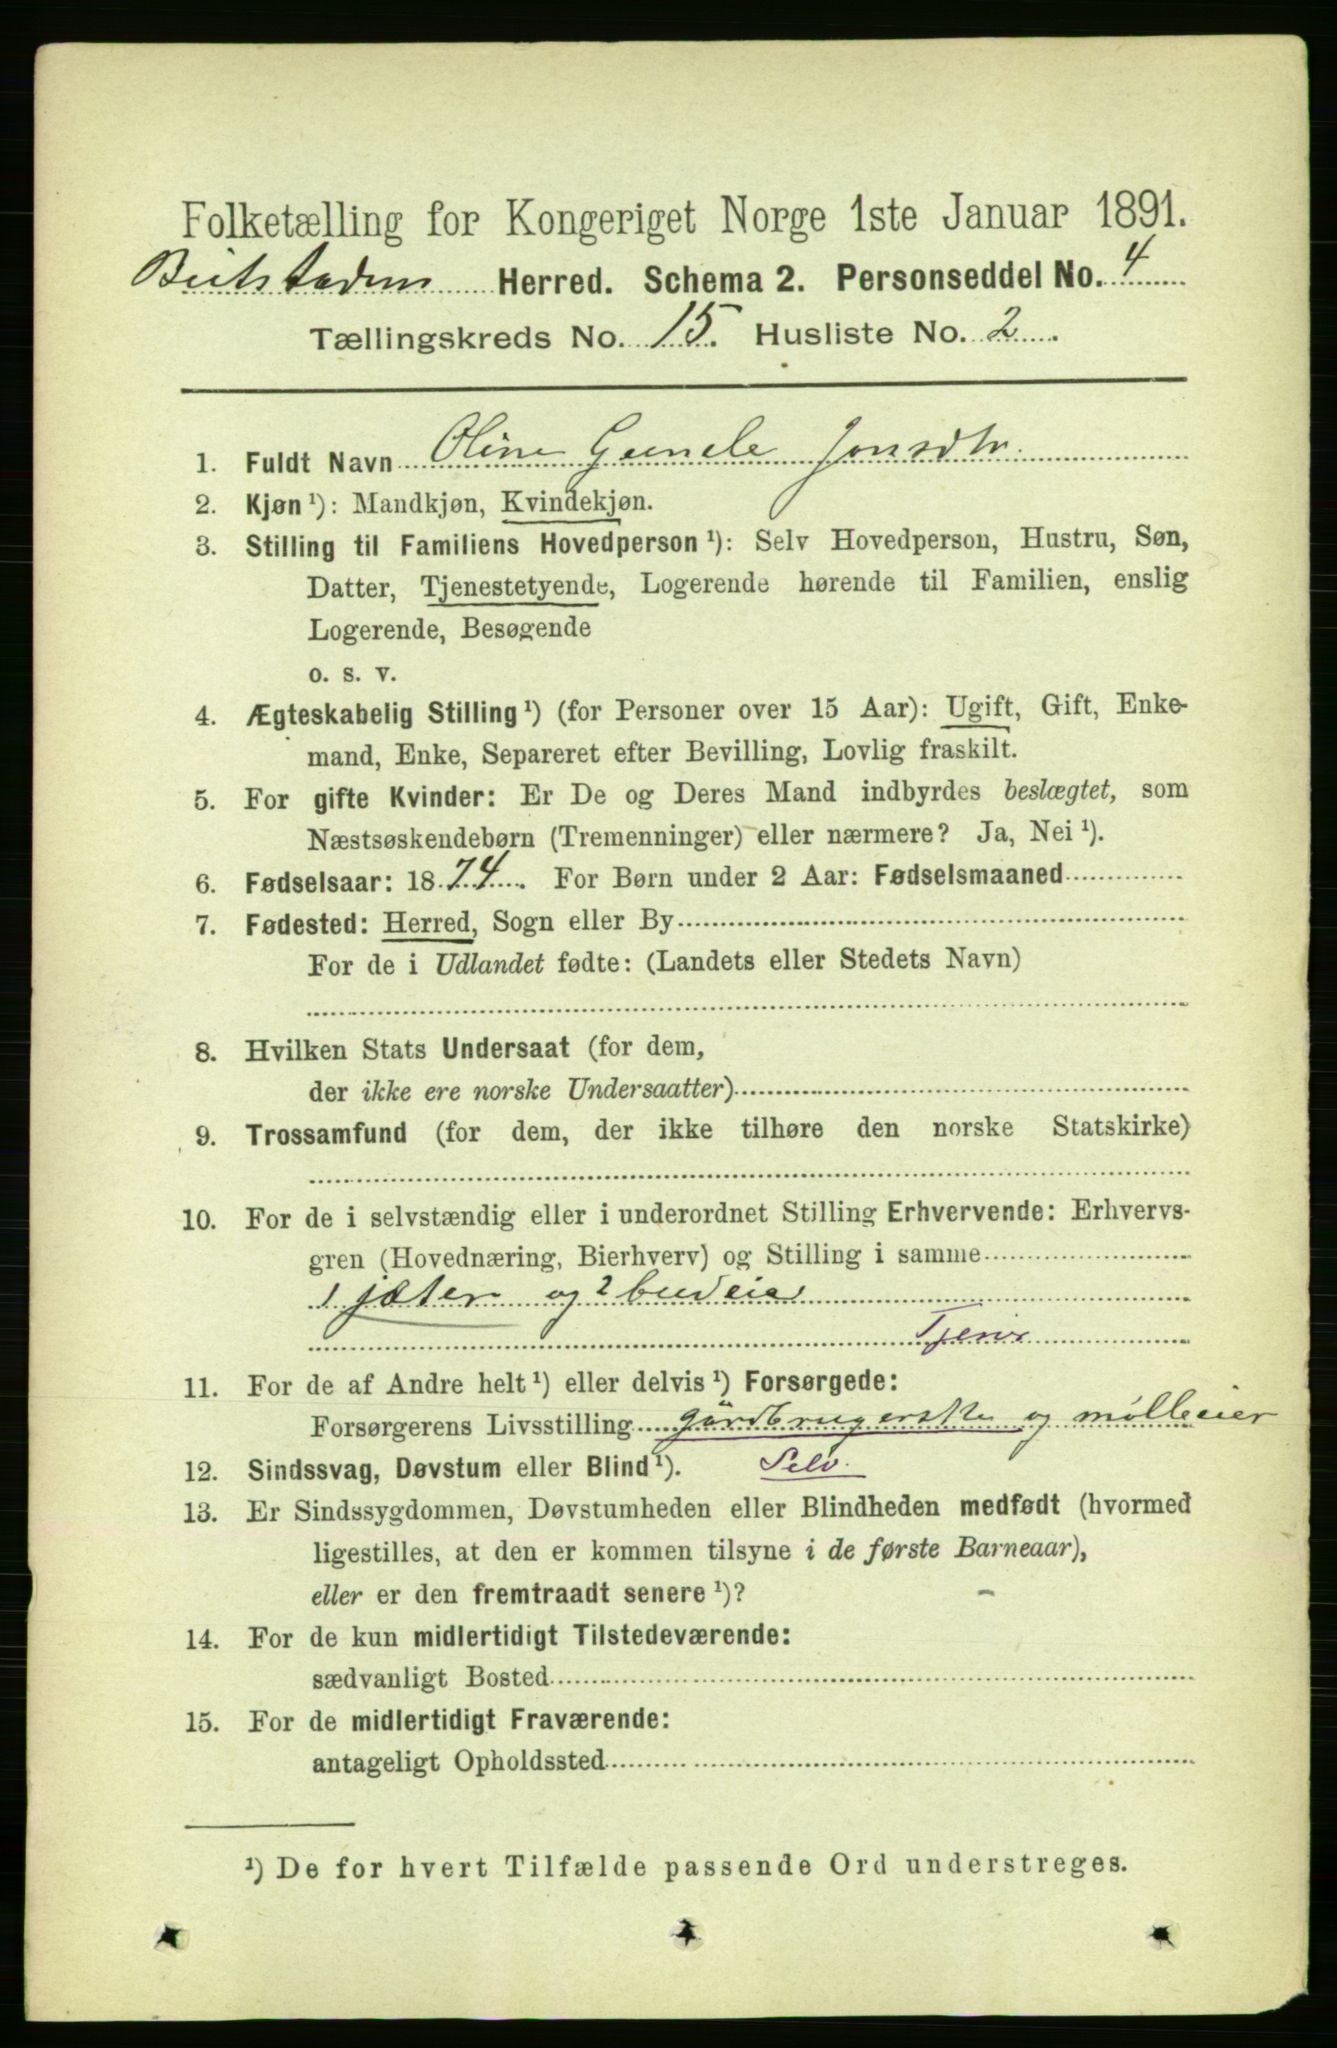 Folketælling for Kongeriget Norge 1ste Januar 1891.
Beitstaden Herred. Schema 2. Personseddel No. 4
Tællingskreds No. 15. Husliste No. 2
1. Fuldt Navn Oline Jonsdtr.
2. Kjøn ¹): Mandkjøn, Kvindekjøn.
3. Stilling til Familiens Hovedperson ¹): Selv Hovedperson, Hustru, Søn,
Datter, Tjenestetyende, Logerende hørende til Familien, enslig
Logerende, Besøgende
o. s. v.
4. Ægteskabelig Stilling ¹) (for Personer over 15 Aar): Ugift, Gift, Enke-
mand, Enke, Separeret efter Bevilling, Lovlig fraskilt.
5. For gifte Kvinder: Er De og Deres Mand indbyrdes beslægtet, som
Næstsøskendebørn (Tremenninger) eller nærmere? Ja, Nei ¹).
6. Fødselsaar: 1874. For Børn under 2 Aar: Fødselsmaaned
7. Fødested: Herred, Sogn eller By
For de i Udlandet fødte: (Landets eller Stedets Navn)
8. Hvilken Stats Undersaat (for dem,
der ikke ere norske Undersaatter)
9. Trossamfund (for dem, der ikke tilhøre den norske Statskirke)
10. For de i selvstændig eller i underordnet Stilling Erhvervende: Erhvervs-
gren (Hovednæring, Bierhverv) og Stilling i samme
1 jæter og 2 budeie
Tjener
11. For de af Andre helt ¹) eller delvis ¹) Forsørgede:
Forsørgerens Livsstilling gårdbrugerske og mølleeier
12. Sindssvag, Døvstum eller Blind ¹). Selv.
13. Er Sindssygdommen, Døvstumheden eller Blindheden medfødt (hvormed
ligestilles, at den er kommen tilsyne i de første Barneaar),
eller er den fremtraadt senere ¹)? –
14. For de kun midlertidigt Tilstedeværende:
sædvanligt Bosted
15. For de midlertidigt Fraværende:
antageligt Opholdssted
¹) De for hvert Tilfælde passende Ord understreges.